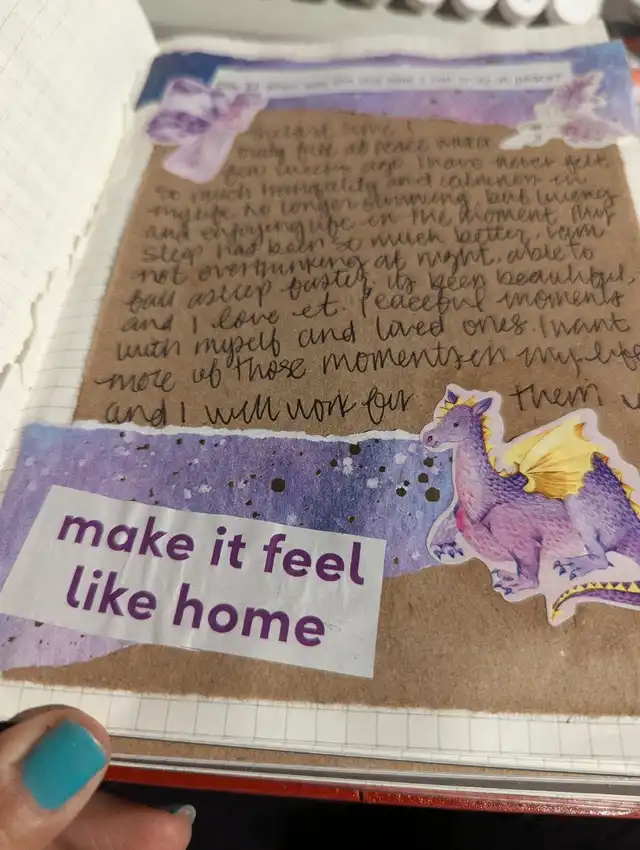 the last time I
truly felt at peace was a
few weeks ago. I have never felt
so much tranquility and calmness in
my life. No longer running, but living
and enjoying life in the moment. My
sleep has been so much better, I am
not overthinking at night, able to
fall asleep faster, its been beautiful,
and I love it. Peaceful moments
with myself and loved ones. I want
more of those moments in my life
and I will work for them
make it feel
like home